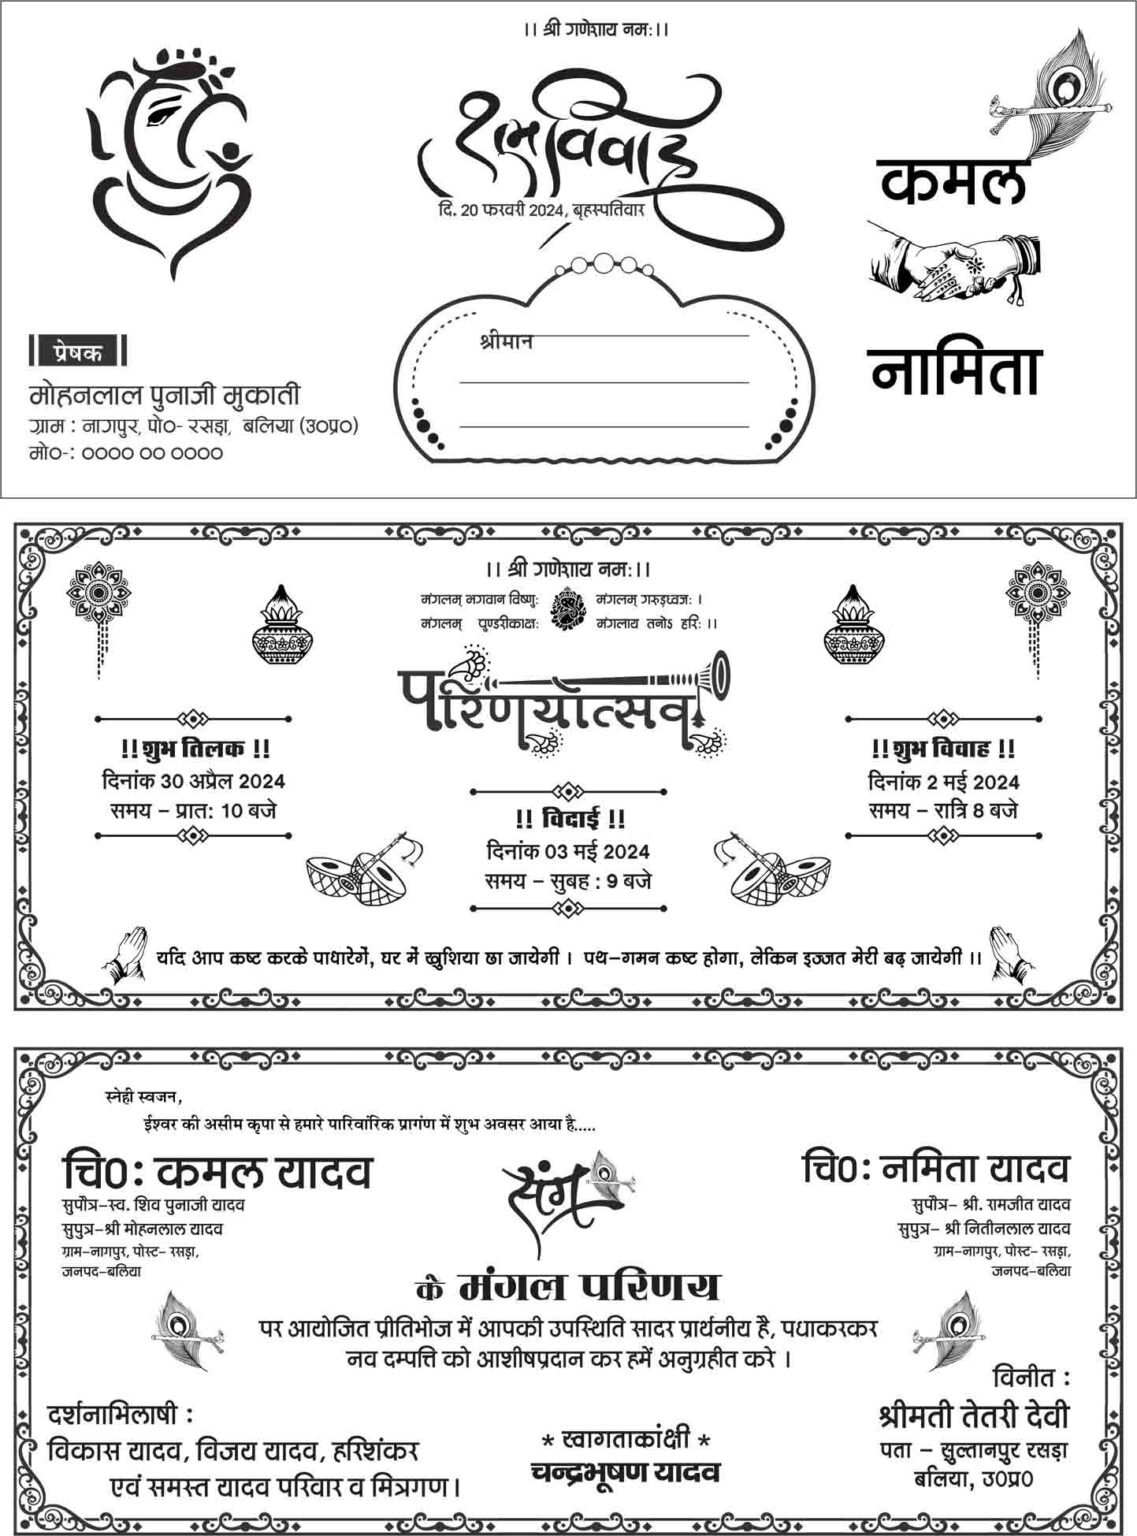 ।। श्री गणेशाय नम:।।
शुभ विवाह
दि. 20 फरवरी 2024, बृहस्पतिवार
कमल
नामिता
श्रीमान
प्रेषक
मोहनलाल पुनाजी मुकाती
ग्राम : नागपुर, पो०- रसड़ा, बलिया (उ०प्र०)
मो०-: ०००० ०० ००००
।। श्री गणेशाय नम:।।
मंगलम् भगवान विष्णु: मंगलम् गरुड़ध्वज: ।
मंगलम् पुण्डरीकाक्ष: मंगलाय तनोऽ हरि: ।।
परिणयोत्सव
!! शुभ तिलक !!
दिनांक 30 अप्रैल 2024
समय – प्रात: 10 बजे
!! विदाई !!
दिनांक 03 मई 2024
समय – सुबह : 9 बजे
!! शुभ विवाह !!
दिनांक 2 मई 2024
समय – रात्रि 8 बजे
यदि आप कष्ट करके पाधारेगें, घर में खुशिया छा जायेगी । पथ-गमन कष्ट होगा, लेकिन इज्जत मेरी बढ़ जायेगी ।।
स्नेही स्वजन,
ईश्वर की असीम कृपा से हमारे पारिवांरिक प्रागंण में शुभ अवसर आया है.....
चि०: कमल यादव
सुपौत्र-स्व. शिव पुनाजी यादव
सुपुत्र-श्री मोहनलाल यादव
ग्राम-नागपुर, पोस्ट- रसड़ा,
जनपद-बलिया
संग
चि०: नमिता यादव
सुपौत्र- श्री. रामजीत यादव
सुपुत्र- श्री नितीनलाल यादव
ग्राम-नागपुर, पोस्ट- रसड़ा,
जनपद-बलिया
के मंगल परिणय
पर आयोजित प्रीतिभोज में आपकी उपस्थिति सादर प्रार्थनीय है, पधाकरकर
नव दम्पत्ति को आशीषप्रदान कर हमें अनुग्रहीत करे ।
दर्शनाभिलाषी :
विकास यादव, विजय यादव, हरिशंकर
एवं समस्त यादव परिवार व मित्रगण।
* स्वागताकांक्षी *
चन्द्रभूषण यादव
विनीत :
श्रीमती तेतरी देवी
पता – सुल्तानपुर रसड़ा
बलिया, उ०प्र०